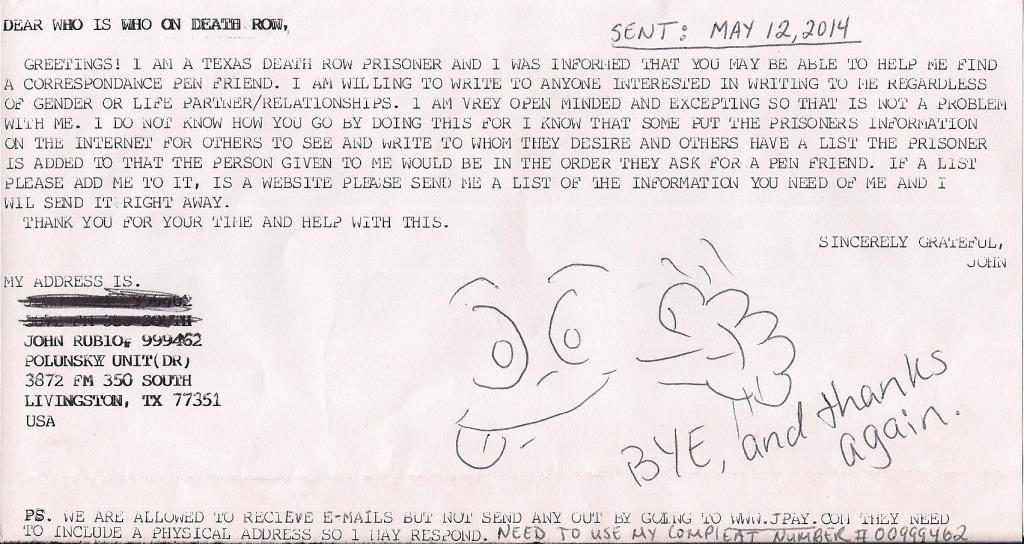 DEAR WHO IS WHO ON DEATH ROW,
SENT: MAY 12, 2014
GREETINGS! I AM A TEXAS DEATH ROW PRISONER AND I WAS INFORMED THAT YOU MAY BE ABLE TO HELP ME FIND
A CORRESPONDANCE PEN FRIEND. I AM WILLING TO WRITE TO ANYONE INTERESTED IN WRITING TO ME REGARDLESS
OF GENDER OR LIFE PARTNER/RELATIONSHIPS. I AM VREY OPEN MINDED AND EXCEPTING SO THAT IS NOT A PROBLEM
WITH ME. I DO NOT KNOW HOW YOU GO BY DOING THIS FOR I KNOW THAT SOME PUT THE PRISONERS INFORMATION
ON THE INTERNET FOR OTHERS TO SEE AND WRITE TO WHOM THEY DESIRE AND OTHERS HAVE A LIST THE PRISONER
IS ADDED TO THAT THE PERSON GIVEN TO ME WOULD BE IN THE ORDER THEY ASK FOR A PEN FRIEND. IF A LIST
PLEASE ADD ME TO IT, IS A WEBSITE PLEASE SEND ME A LIST OF THE INFORMATION YOU NEED OF ME AND I
WIL SEND IT RIGHT AWAY.
THANK YOU FOR YOUR TIME AND HELP WITH THIS.
SINCERELY GRATEFUL,
JOHN
MY ADDRESS IS.
JOHN RUBIO# 999462
POLUNSKY UNIT(DR)
3872 FM 350 SOUTH
LIVINGSTON, TX 77351
USA
BYE, and thanks
again.
PS. WE ARE ALLOWED TO RECIEVE E-MAILS BUT NOT SEND ANY OUT BY GOING TO WWW.JPAY.COM THEY NEED
TO INCLUDE A PHYSICAL ADDRESS SO I MAY RESPOND. NEED TO USE MY COMPLEAT NUMBER # 00999462